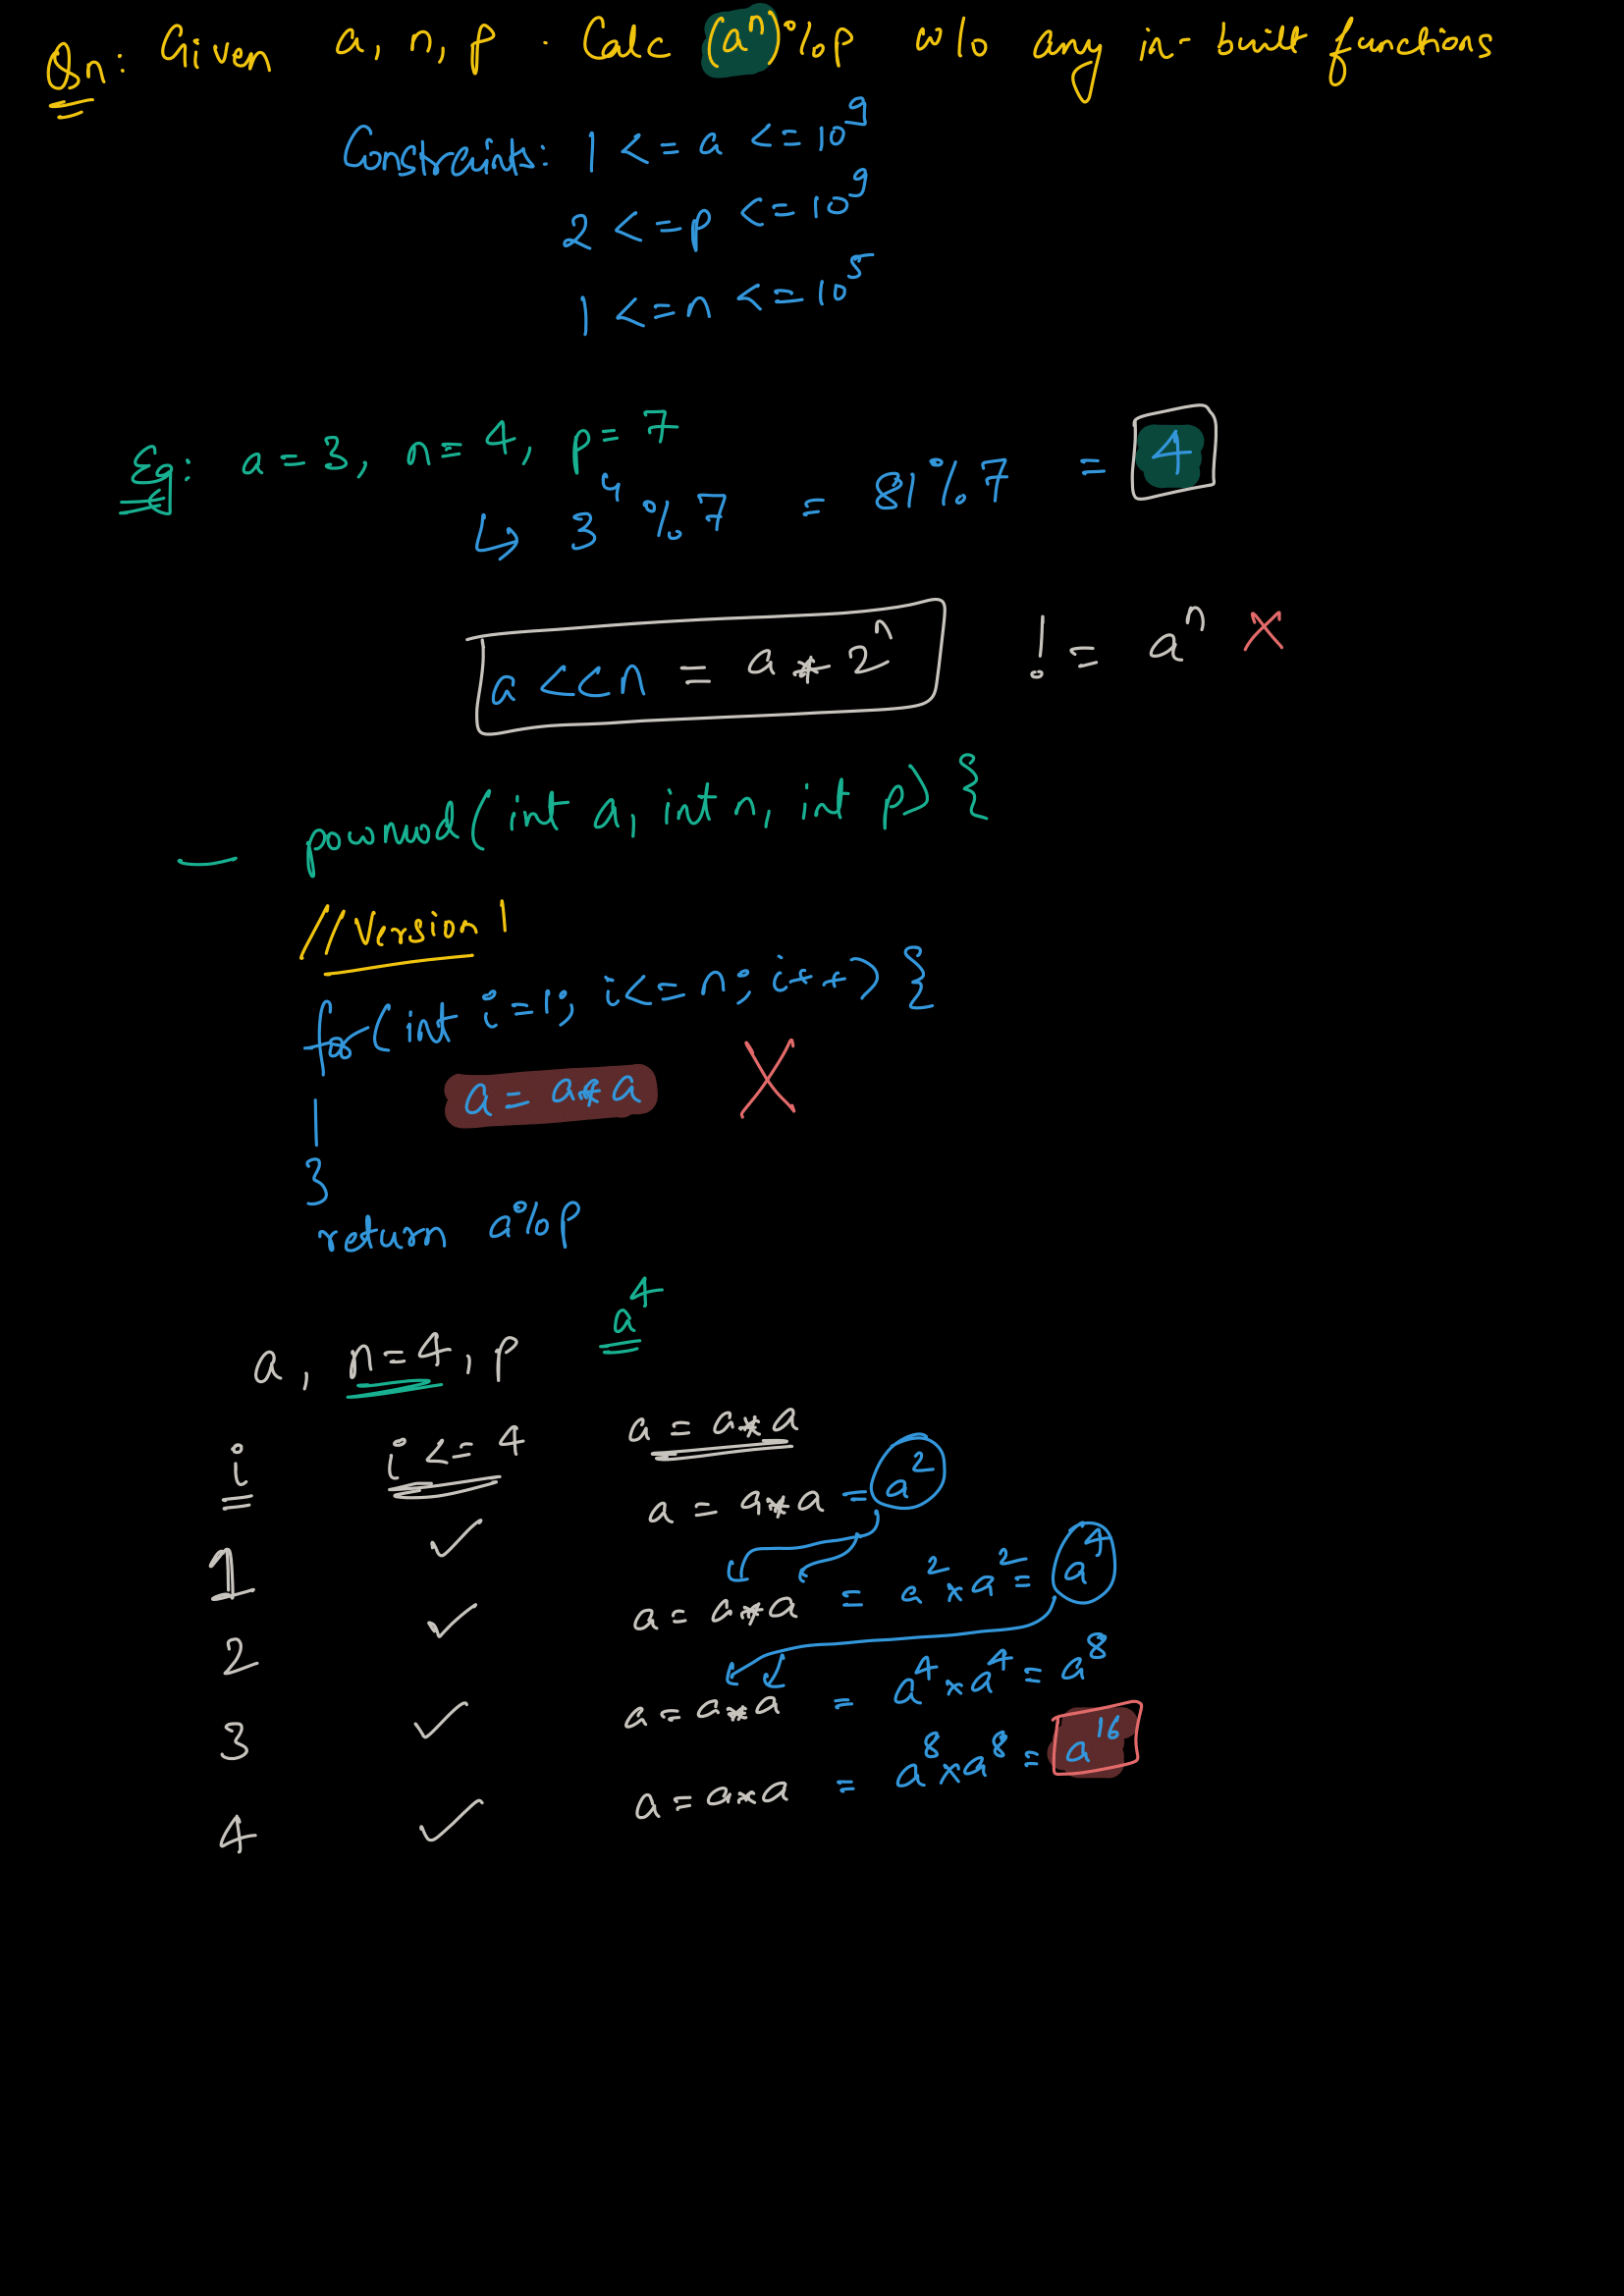 Qn: Given a, n, p . Calc (a^n)%p w/o any in-built functions
Constraints: 1 <= a <= 10^9
2 <= p <= 10^9
1 <= n <= 10^5
Eg: a = 3, n = 4, p = 7
↳ 3^4 % 7 = 81%7 = 4
a << n = a * 2^n != a^n X
— powmod(int a, int n, int p) {
//Version 1
for(int i=1; i<=n; i++) {
a = a*a X
}
return a%p
a, n=4, p a^4
i i <= 4 a = a*a
1 ✓ a = a*a = a^2
2 ✓ a = a*a = a^2 × a^2 = a^4
3 ✓ a = a*a = a^4 × a^4 = a^8
4 ✓ a = a*a = a^8 × a^8 = a^16